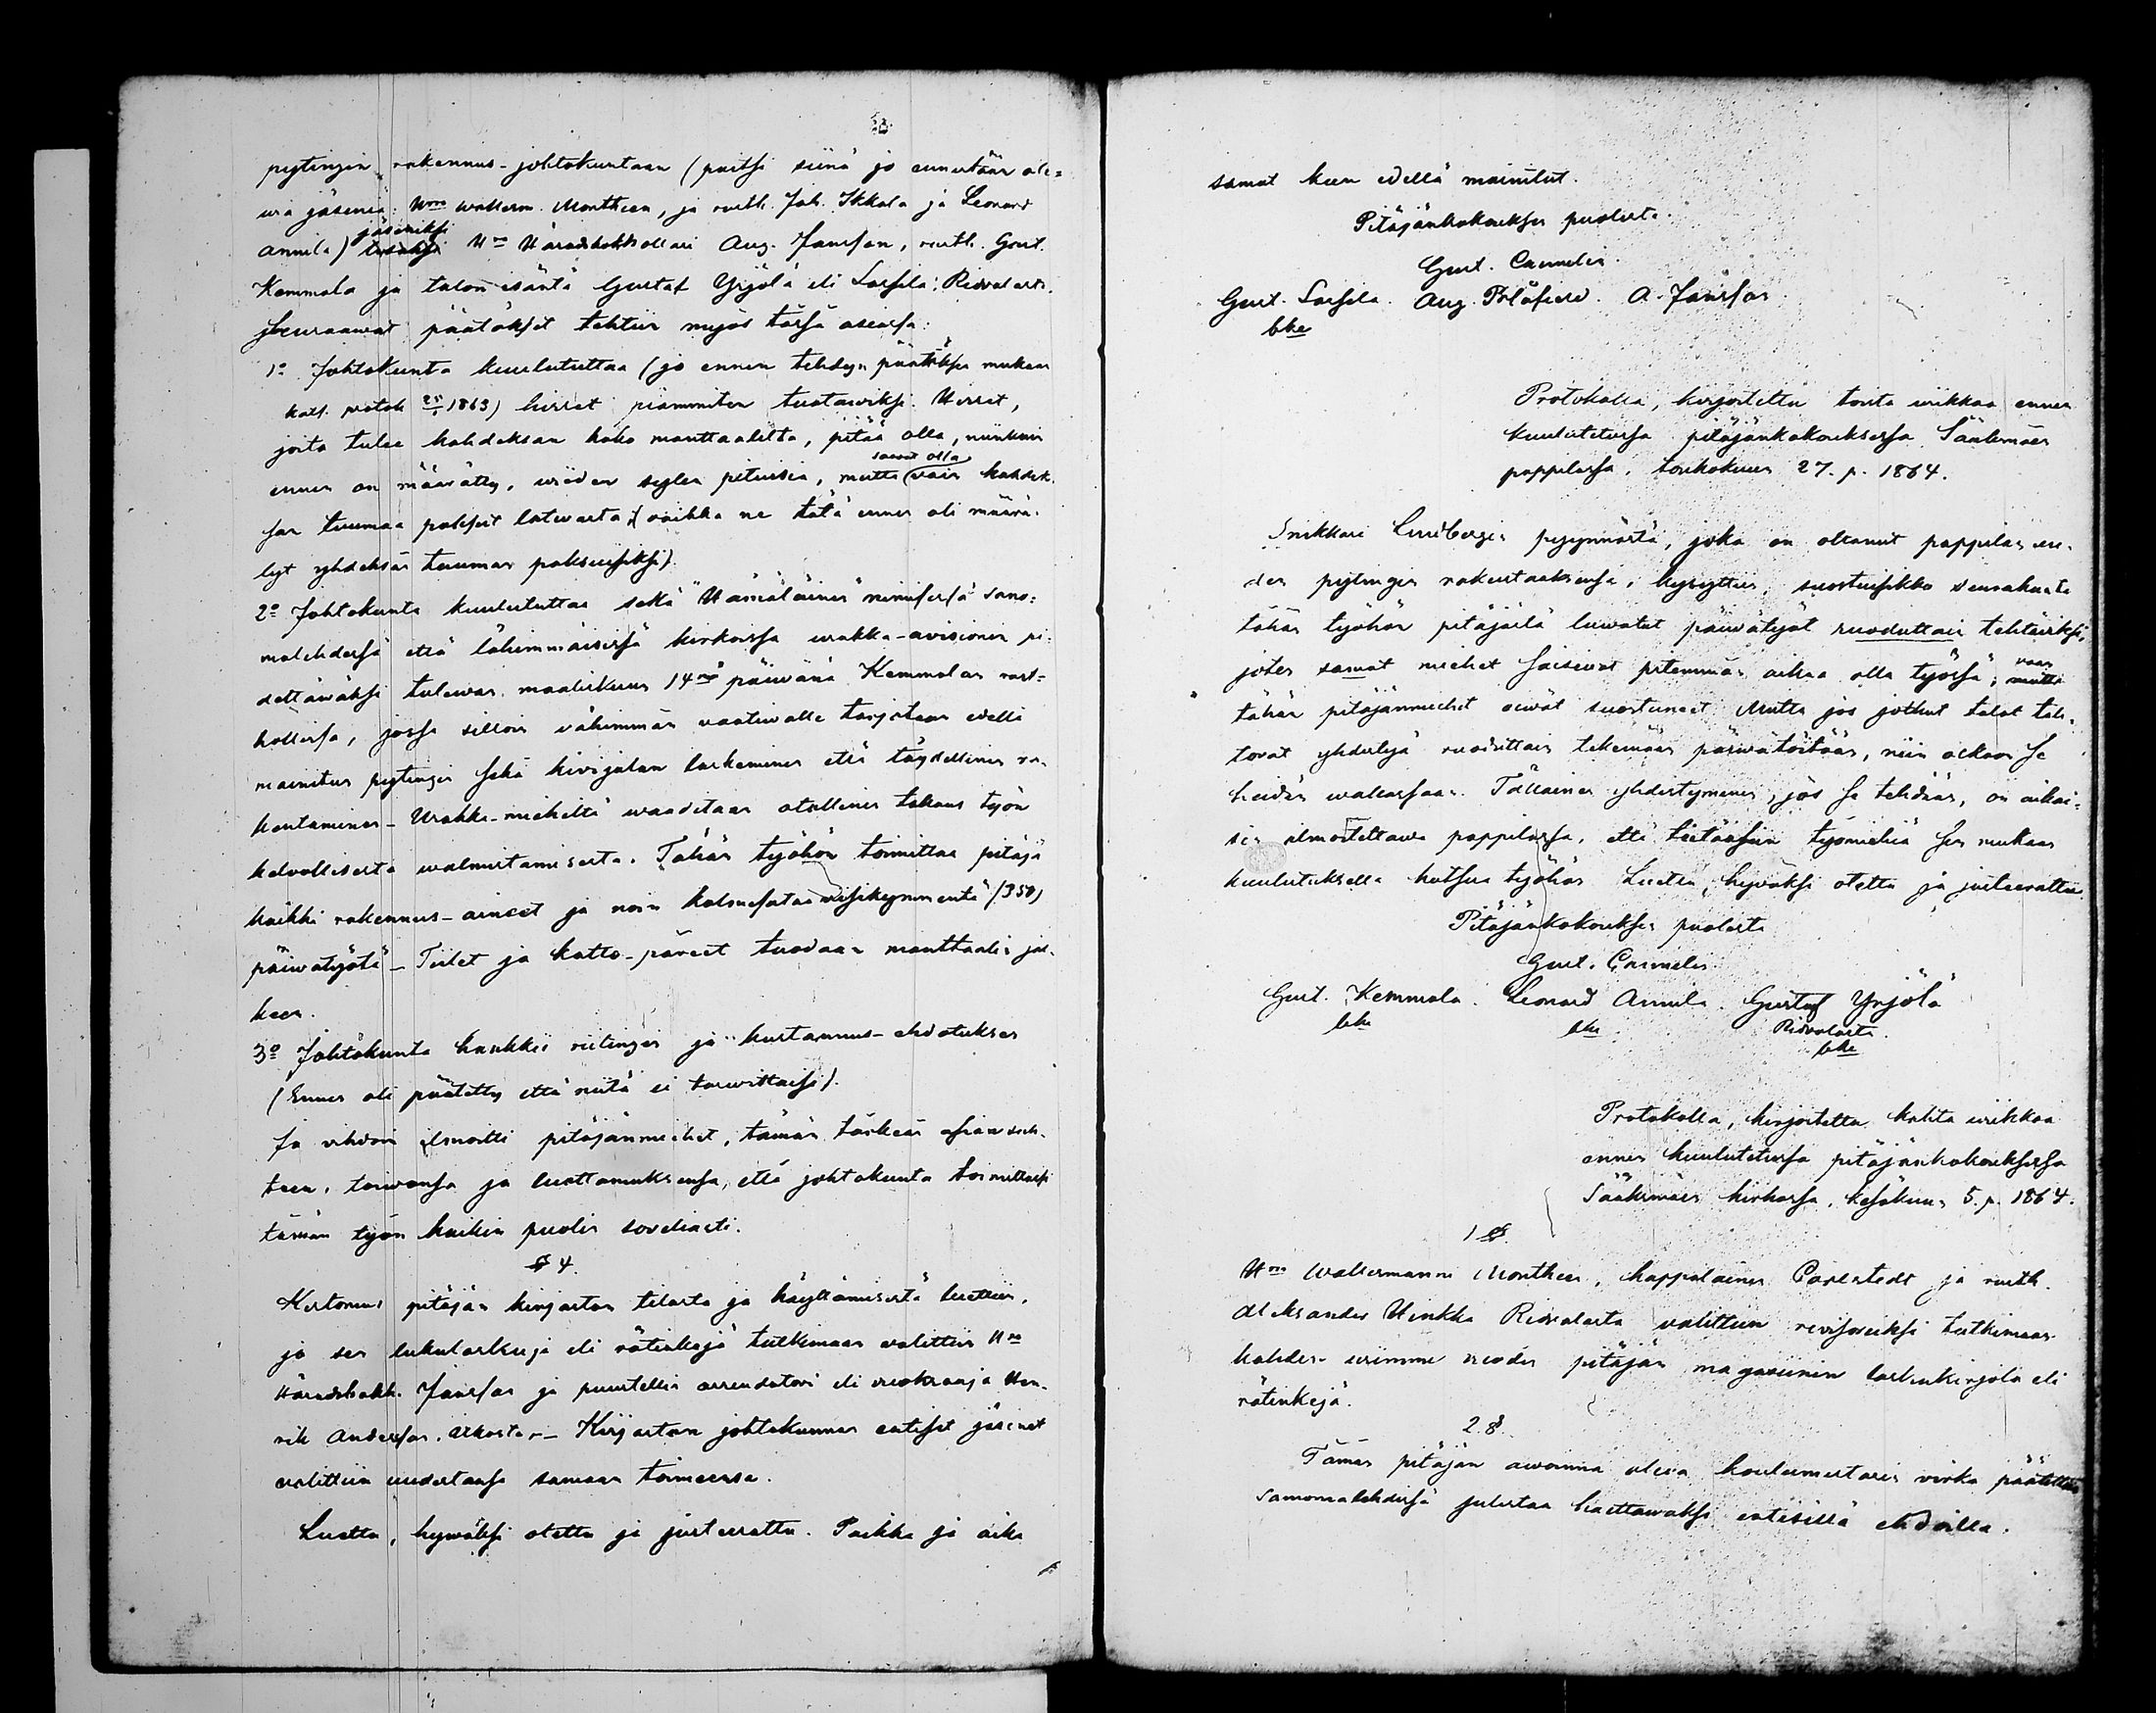 pytingin rakennus-johtokuntaan (paitsi siinä jo ennestään ole-
via jäseniä: Hrra wallesm. Montheen, ja rusth. Joh. Ikkala ja Leonard
jäseniksi
Annila) Hra Häradshöfd Aug. Jansson, rusth. Gust.
Kemmola ja talon isäntä Gustaf Yrjölä eli Sassila, Ridvalasta.
Seuraawat päätökset tehtiin myös tässä asiassa:
1o Johtokunta kuuluttuttaa (jo ennen tehdyn päätöksen mukaan
kats. protok. 1863) hirret piammiten tuotawiksi. Hirret,
joita tulee kahdeksan koko manttaalilta, pitää olla, niinkuin
saavat olla
ennen on määrätty, wiiden sylen pituisia, mutta vain kahdek-
san tuumaa paksut latwasta (vaikka ne tätä ennen oli määrä-
tyt yhdeksän tuuman paksuisiksi).
2o Johtokunta kuuluttuttaa sekä "Hämäläinen" nimisessä sano-
malehdessä että lähimmäisissä kirkoissa urakka-avisionin pi-
dettäwäksi tulewan maaliskuun 14nä päiwänä Kemmolan rust-
hollissa, jossa silloin vähimmän vaatiwalle tarjotaan edellä
mainitun pytingin sekä kivijalan laskeminen että täydellinen ra-
kentaminen - Urakka-mieheltä waaditaan otollinen takaus työn
kelvollisesta walmistamisesta. Tähän työhön toimittaa pitäjä
kaikki rakennus-aineet ja noin kolmesataa wiisikymmentä (350)
päiwätyötä - Tiilet ja katto-päreet tuodaan manttaalin jäl-
keen.
3o Johtokunta hankkii ritingin ja kustannus-ehdotuksen
(Ennen oli päätetty että niitä ei tarwittaisi).
Ja vihdoin ilmoitti pitäjänmiehet, tämän tärkeän asian suh-
teen, toiwonsa ja luottamuksensa, että johtokunta toimittaisi
tämän työn kaikin puolin soveliaasti.
§ 4.
Kertomus pitäjän kirjaston tilasta ja käyttämisestä luettiin,
ja sen lukulaskuja eli rätinkejä tutkimaan valittiin Hra
Häradshöfd. Jansson ja puustellin arrendatori eli vuokraaja Hen-
rik Andersson. - Kirjaston johtokunnan entiset jäsenet
valittiin uudestansa samaan toimeensa.
Luettu, hywäksi otettu ja justeerattu. Paikka ja aika
samat kuin edellä mainitut.
Pitäjänkokouksen puolesta.
Gust. Cannelin.
Gust. Sassila. Aug. Blåfield. A. Jansson
bke
Protokolla, kirjoitettu toista wiikkoa ennen
kuulutetussa pitäjänkokouksessa Sääksmäen
pappilassa, toukokuun 27. p. 1864.
Snikkari Lindbergin pyynnöstä, joka on ottanut pappilan uu-
den pytingin rakentaaksensa, kysyttiin, suostuisikko seurakunta
tähän työhön pitäjästä luwatut päiwätyöt ruoduttain tehtäwiksi,
joten samat miehet saisiwat pitemmän aikaa olla työssä; vaan
tähän pitäjänmiehet eiwät suostuneet. Mutta jos jotkut talot tah-
towat yhdistyä ruoduttain tekemään päiwätöitään, niin olkoon se
heidän wallassaan. Tällainen yhdistyminen, jos se tehdään, on aikai-
sin ilmoitettawa pappilassa, että tiettäisiin työmiehiä sen mukaan
kuulutuksella kutsua työhön. Luettu, hywäksi otettu ja justeerattu.
Pitäjänkokouksen puolesta
Gust. Cannelin.
Gust. Kemmola. Leonard Annila. Gustaf Yrjölä
bke bke Ridvalasta.
bke
Protokolla, kirjoitettu kahta wiikkoa
ennen kuulutetussa pitäjänkokouksessa
Sääksmäen kirkossa, kesäkuun 5. p. 1864.
1 §.
Hra Wallesmanni Montheen, kappalainen Carlstedt ja rusth.
Aleksander Hinkka Ridvalasta valittiin revisoriksi tutkimaan
kahden wiimme vuoden pitäjän magasiinin laskukirjoja eli
rätinkejä.
2 §.
Tämän pitäjän awoinna olewa koulumestarin virka päätettiin
sanomalehdissä julistaa haettawaksi entisillä ehdoilla.